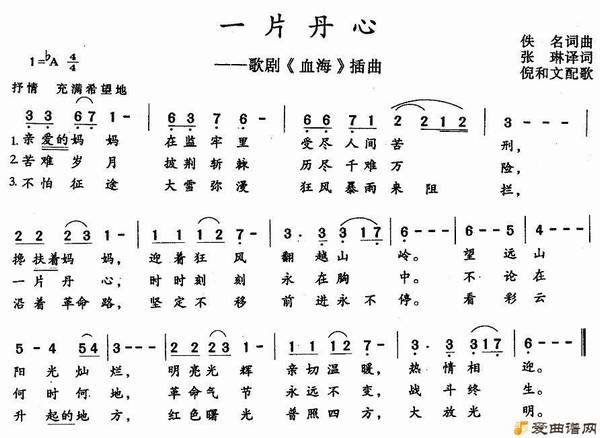 一片丹心
——歌剧《血海》插曲
佚 名词曲
张 琳译词
倪和文配歌
1=♭A 4/4
抒情 充满希望地
3 3 6 7 1 - 6 6 3 7 - 6 7 1 2 2 1 2 3 - -
1. 亲爱的妈妈 在监牢里 受尽人间苦 刑,
2. 苦难岁月 披荆斩棘 历尽千难万 险,
3. 不怕征途 大雪弥漫 狂风暴雨来阻 拦,
2 2 2 3 1 - 1 2 1 7 - 3 · 3 3 1 7 6 - - 6 - 6 5
搀扶着妈妈, 迎着狂风 翻越山岭。 望远山
一片丹心, 时时刻刻 永在胸中。 不论在
沿着革命路, 坚定不移 前进永不停。 看彩云
5 - 4 5 4 3 - - 3 2 2 3 1 - 1 1 1 2 7 - 3 · 3 3 1 7 6 - -
阳光灿烂, 明亮光辉 亲切温暖, 热情相迎。
何时何地, 革命气节 永远不变, 战斗终生。
升起的地方, 红色曙光 普照四方, 大放光明。
爱曲谱网